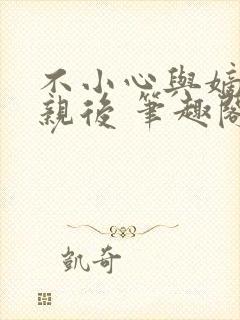 不小心與嫡
親後 筆趣閣
凱奇